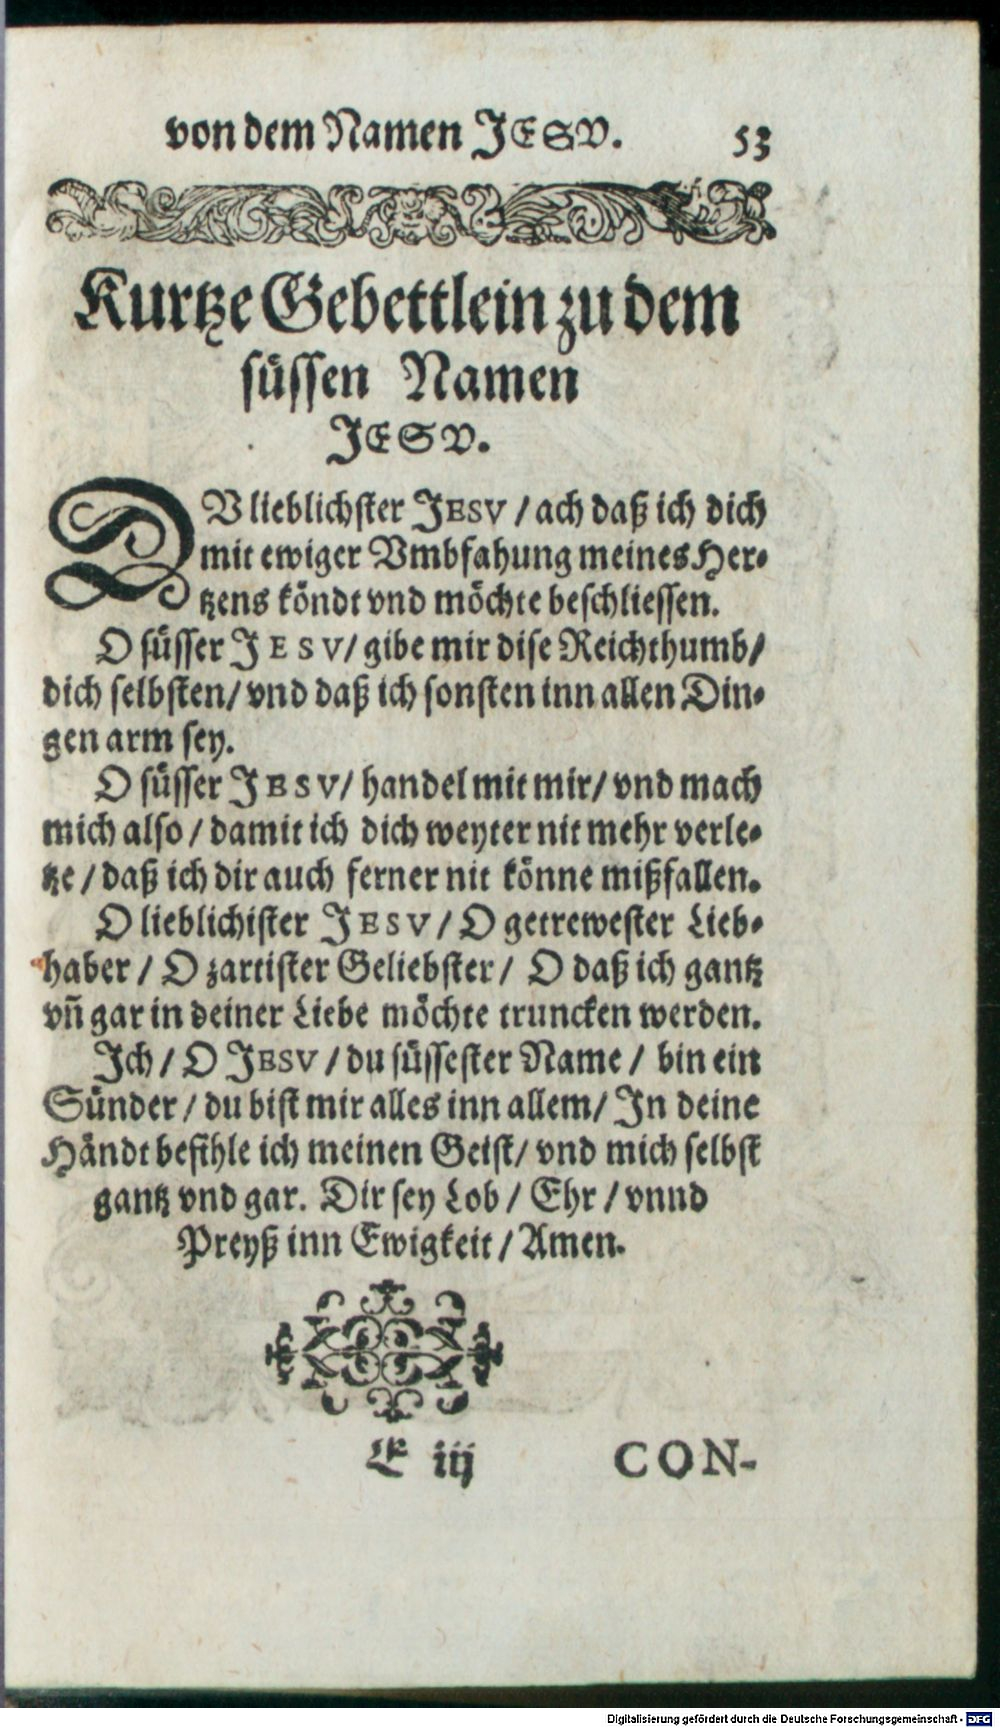 von dem Namen JESV. 53
Kurtze Gebettlein zu dem
süssen Namen
JESV.
DV lieblichster JESV / ach daß ich dich
mit ewiger Vmbfahung meines Her-
tzens köndt vnd möchte beschliessen.
O süsser JESV/ gibe mir dise Reichthumb/
dich selbsten/ vnd daß ich sonsten inn allen Din-
gen arm sey.
O süsser JESV/ handel mit mir/ vnd mach
mich also / damit ich dich weyter nit mehr verle-
tze / daß ich dir auch ferner nit könne mißfallen.
O lieblichister JESV / O getrewester Lieb-
haber / O zartister Geliebster / O daß ich gantz
vñ gar in deiner Liebe möchte truncken werden.
Ich / O JESV / du süssester Name / bin ein
Sünder / du bist mir alles inn allem/ In deine
Händt befihle ich meinen Geist/ vnd mich selbst
gantz vnd gar. Dir sey Lob / Ehr / vnnd
Preyß inn Ewigkeit / Amen.
E iij CON-
Digitalisierung gefördert durch die Deutsche Forschungsgemeinschaft - DFG